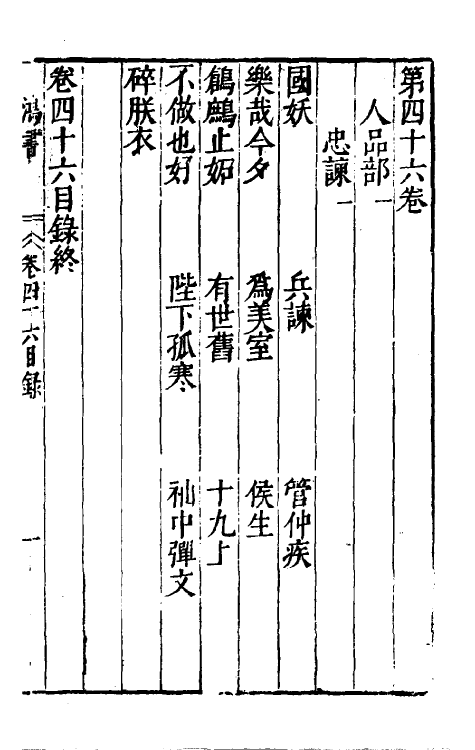 第四十六卷
人品部一
忠諫一
國妖 兵諫 管仲疾
樂哉今夕 爲美室 侯生
鶬鷀止妬 有世舊 十九上
不做也好 陛下孤寒 袖中彈文
碎朕衣
卷四十六目錄終
鴻書 卷四十六目録 一